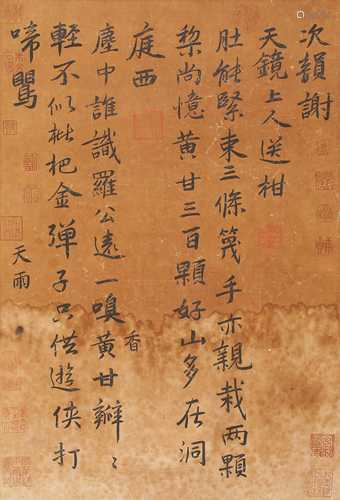 次韻謝
天鏡上人送柑
肚皮緊束三條篾手亦親栽兩顆
梨尚憶黃甘三百顆好山多在洞
庭西
塵中誰識羅公遠一嗅黃甘瓣〻香
輕不似枇杷金彈子只供遊俠打
啼鶯
天雨